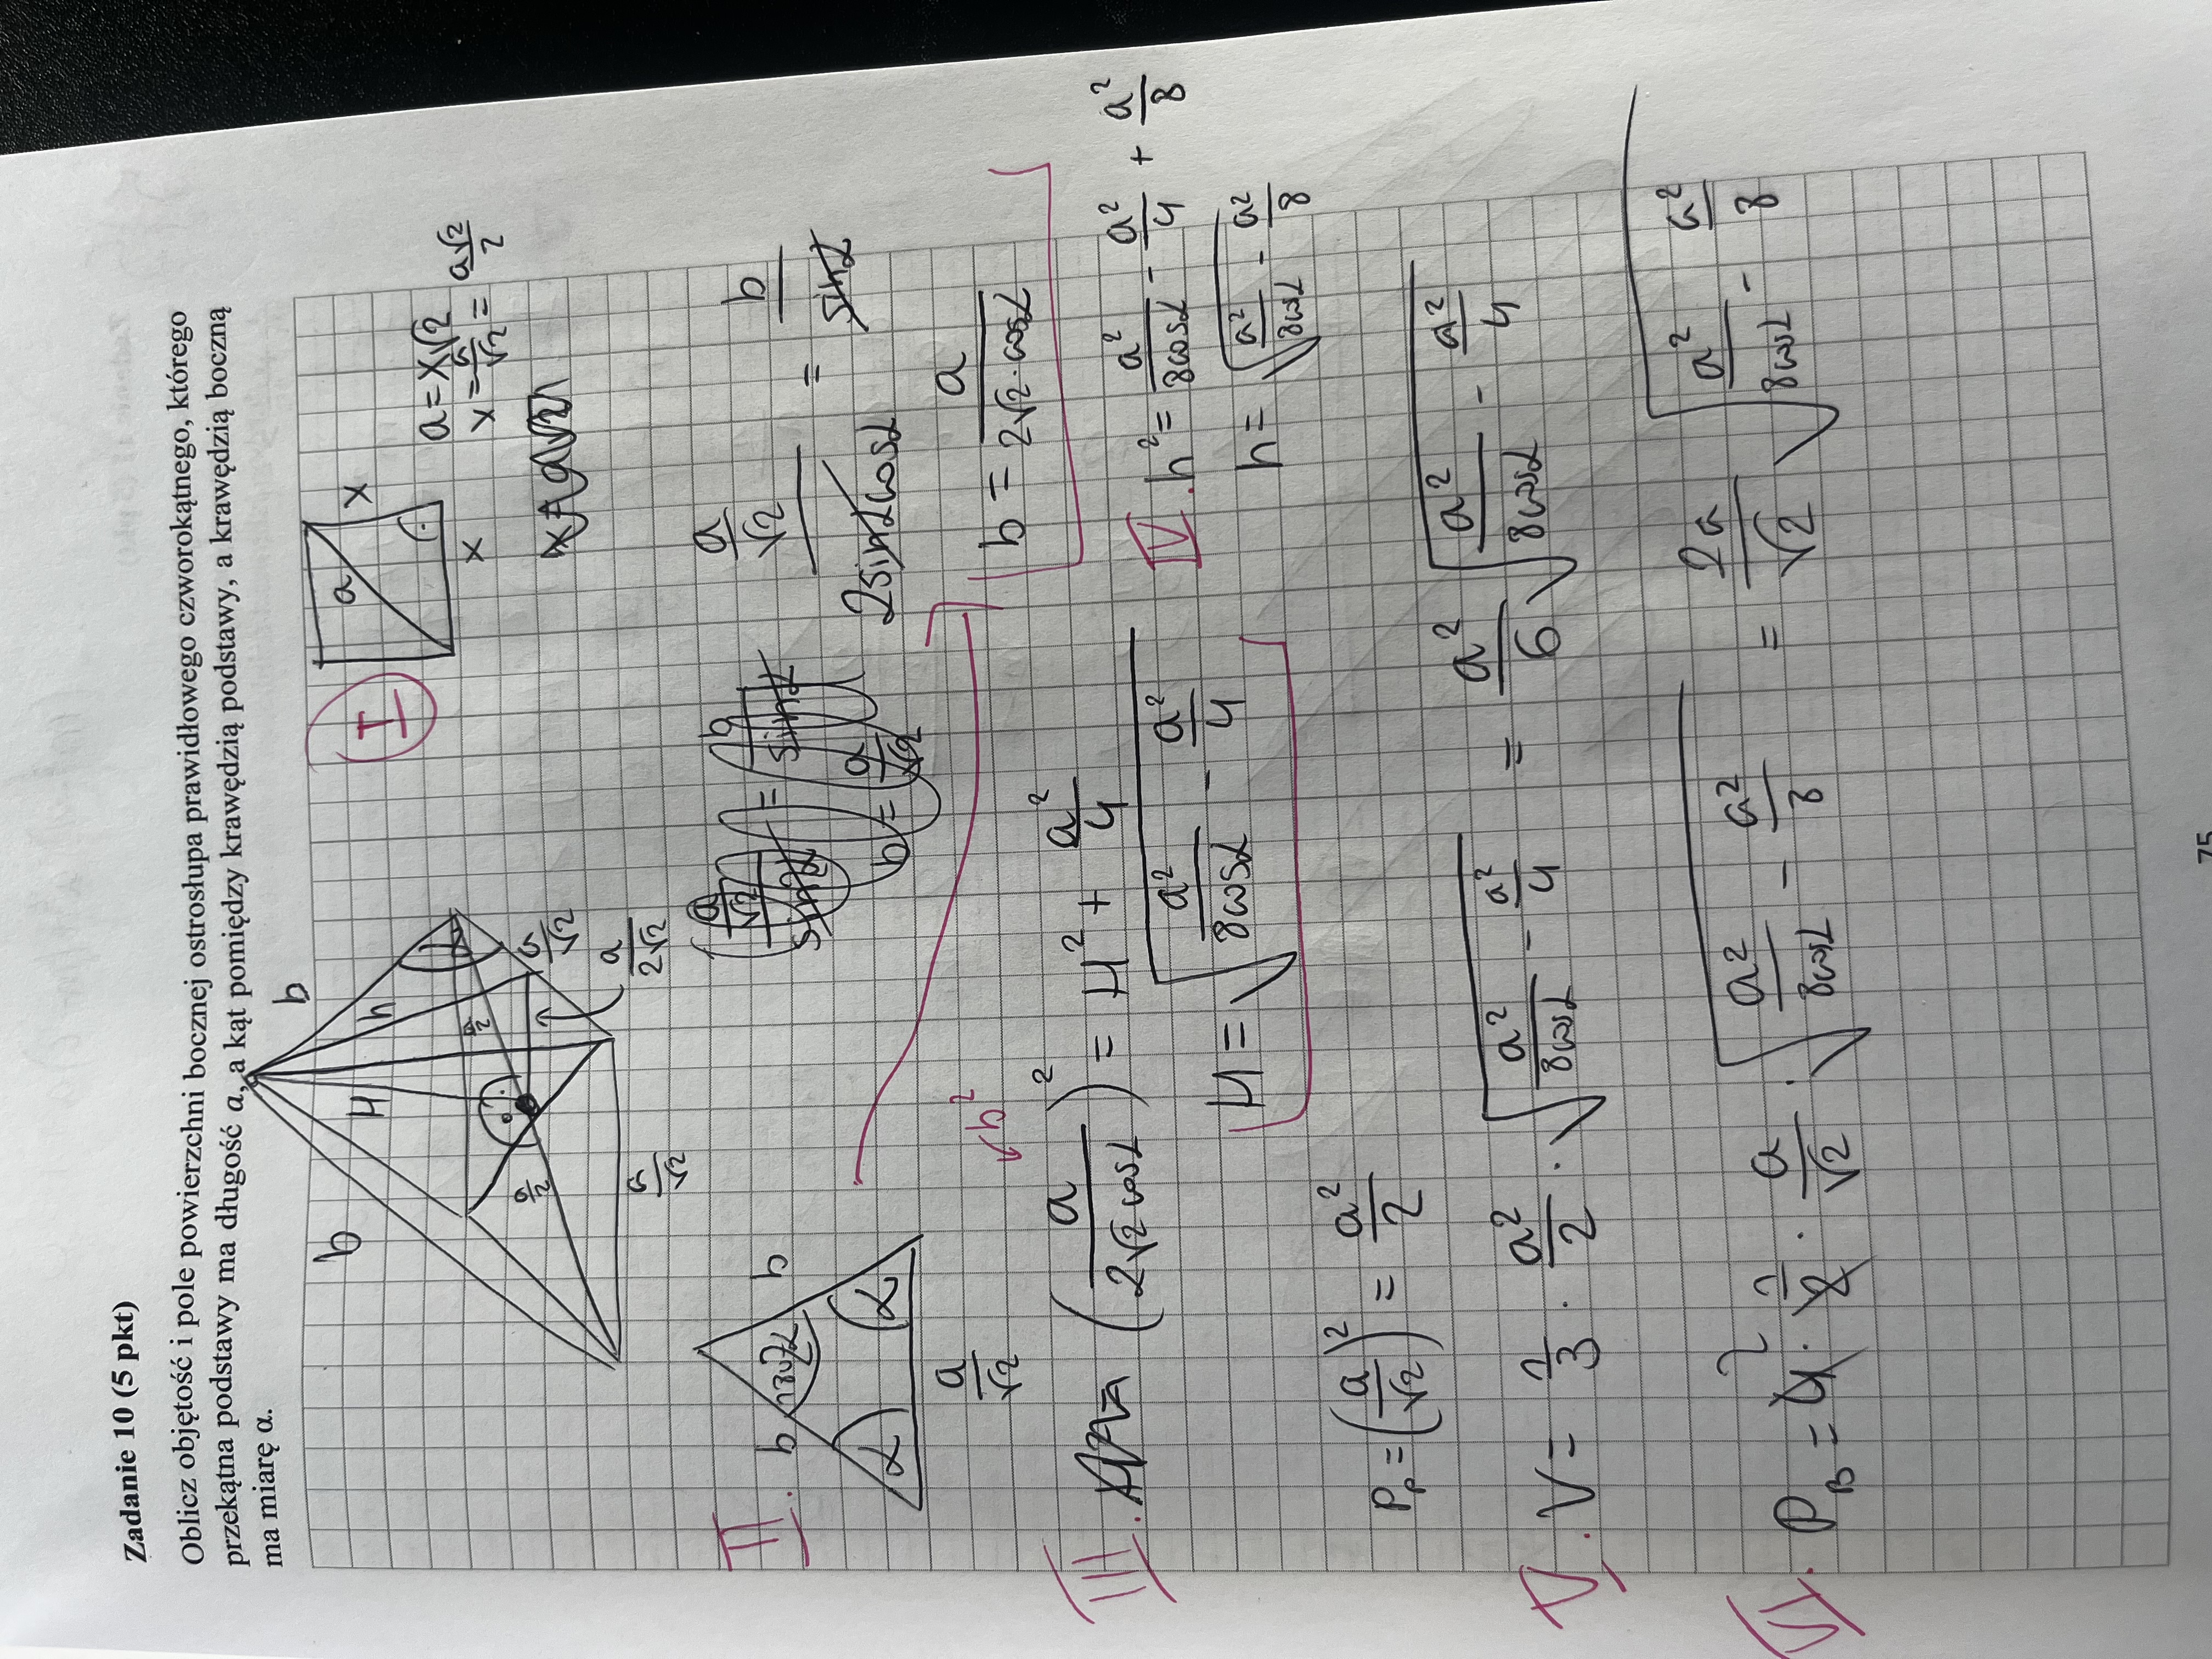 Zadanie 10 (5 pkt)
Oblicz objętość i pole powierzchni bocznej ostrosłupa prawidłowego czworokątnego, którego
przekątna podstawy ma długość a, a kąt pomiędzy krawędzią podstawy, a krawędzią boczną
ma miarę α.
b b
h
H
a/2
a/2
a/√2
a/2√2
a/√2
I
a
x
x
a = x√2
x = a/√2 = a√2/2
II.
b b
180-2α
α α
a/√2
b =
a/√2
a/√2 / 2sinαcosα = b / sinα
b = a / 2√2·cosα
↙b²
III. (a / 2√2cosα)² = H² + a²/4
H = √(a²/8cosα - a²/4)
IV. h² = a²/8cosα - a²/4 + a²/8
h = √(a²/8cosα - a²/8)
Pp = (a/√2)² = a²/2
V. V = 1/3 · a²/2 · √(a²/8cosα - a²/4) = a²/6 √(a²/8cosα - a²/4)
VI. PB = 4 · 1/2 · a/√2 · √(a²/8cosα - a²/8) = 2a/√2 √(a²/8cosα - a²/8)
75